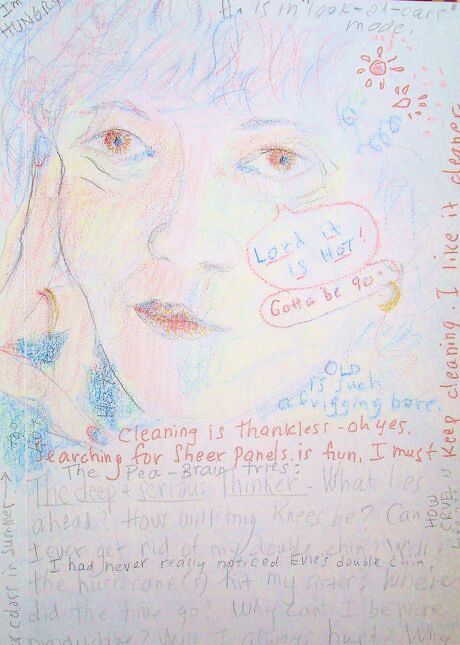 I'm
HUNGRY
He is in "look-at-cars"
mode.
Lord it
is HOT!
Gotta be 90.
OLD
is such
a frigging bore.
Keep cleaning. I like it cleaner.
Cleaning is thankless - oh yes.
Searching for Sheer Panels is fun. I must
The Pea-Brain tries:
The deep + serious Thinker - What lies
ahead? How will my knees be? Can
I ever get rid of my double chin? Will
I had never really noticed Evie's double chin.
the hurricane(s) hit my sister? Where
did the time go? Why can't I be more
productive? Will I always hurt? Why
HOW
colors in summer → Too
HOT